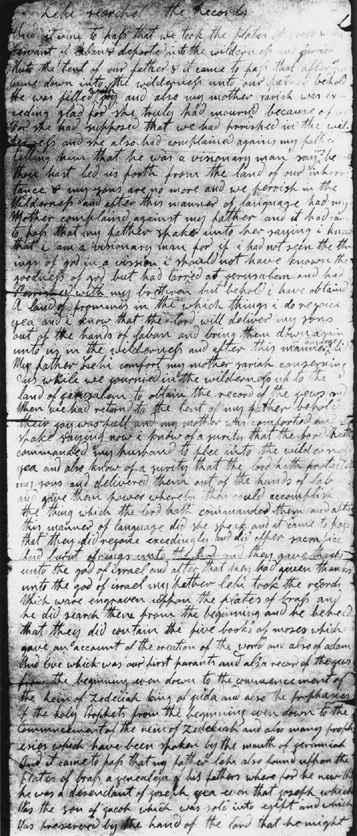 Lehi searches the Records
it came to pass that we took the plates of
servant of Laban & departed into the wilderness and
unto the tent of our father & it came to pass that after
came down into the wilderness unto our father behold
he was filled joy and also my mother sariah was ex
ceding glad for she truly had mourned because of
for she had supposed that we had perrished in the wil
derness and she also had complained against my father
telling him that he was a visionary man saying be
thou hast led us forth from the land of our inheri
tance & my sons are no more and we perrish in the
Wilderness and after this manner of language had my
Mother complained against my father and it had
to pass that my father spake unto her saying i know
that i am a visionary man for if i had not seen the th
ings of god in a vission i should not have known the
goodness of god but had tarried at jerusalem and had
perrished with my brethren but behold i have obtaind
A land of promise in the which things i do rejoice
yea and i know that the lord will deliver my sons
out of the hands of laban and bring them down again
unto us in the wilderness and after this manner
My father lehi comfort my mother sariah conserning
us while we journied in the wilderness up to the
land of jerusalem to obtain the record of the jews and
When we had returnd to the tent of my father behold
their joy was full and my mother was comforted and
spake saying now i know of a surity that the lord hath
commanded my husband to flee into the wilderness
yea and i also know of a surity that the lord hath protected
my sons and delivered them out of the hands of lab
and gave them power whereby they could accomplish
the thing which the lord hath commanded them and after
this manner of language did she speak and it came to pass
that they did rejoice exceedingly and did offer sacrifice
and burnt offerings unto the lord and they gave thanks
unto the god of israel and after that they had given thanks
unto the god of israel my father lehi took the records
Which were engraven uppon the plates of brass and
he did search them from the beginning and he beheld
that they did contain the five books of moses which
gave an account of the creation of the world and also of adam
And eve which was our first parants and also a record of the jews
from the beginning even down to the commencement of
the reign of Zedeciah king of juda and also the prophasies
of the holy prophets from the beginning even down to the
commencement of the reign of Zedekiah and also many proph
esies which have been spoken by the mouth of jeremiah
And it came to pass that my father lehi also found uppon the
plates of brass a genealogy of his fathers wherefore he new that
he was a desendant of joseph yea even that joseph which
Was the son of jacob which was sold into egypt and which
Was preserved by the hand of the lord that he might